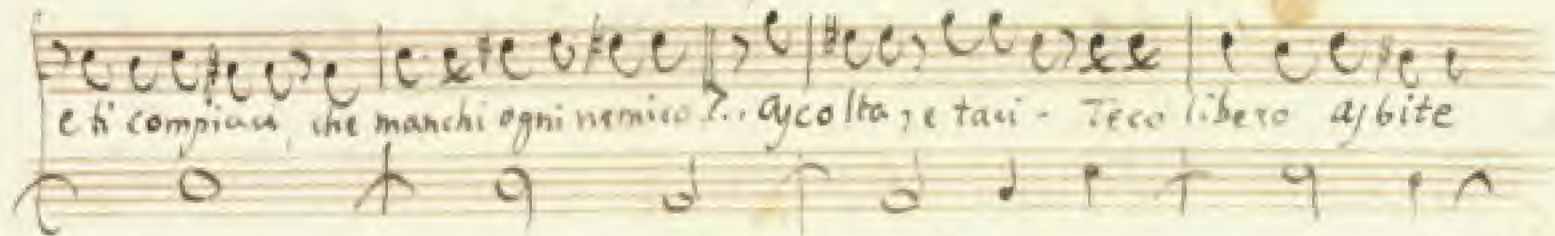 e ti compiaci, che manchi ogni nemico?.. Ascolta, e taci - Teco libero arbite